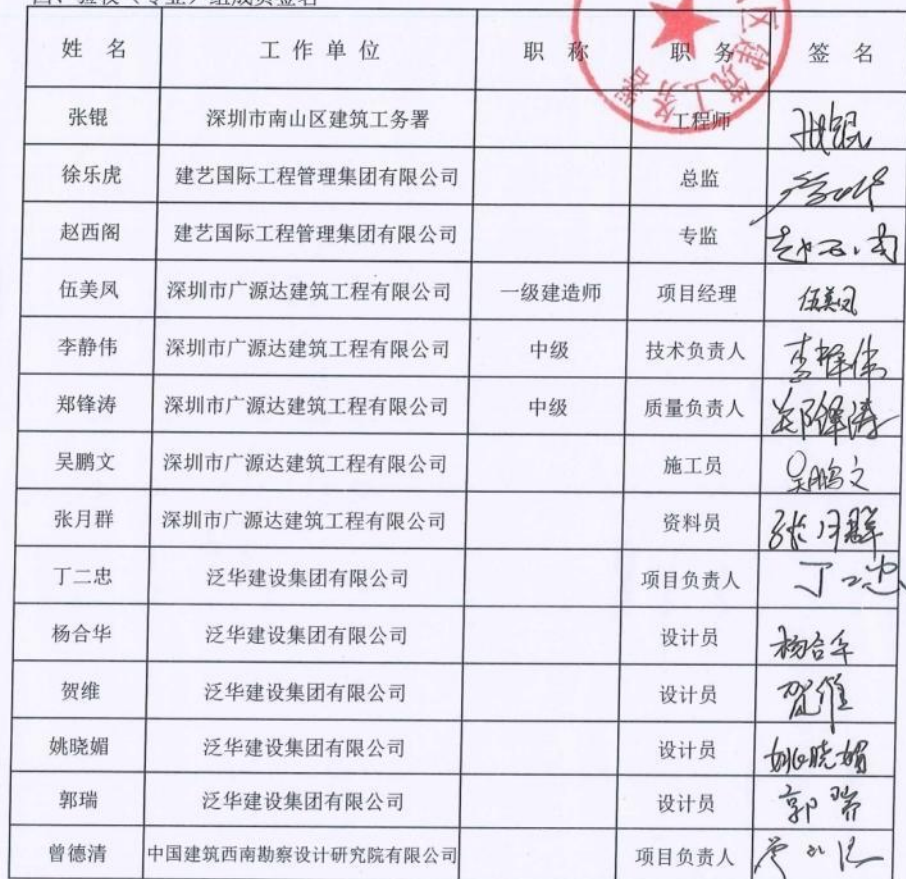 四、验收（专业）组成员签名
姓 名 工 作 单 位 职 称 职 务 签 名
张锟 深圳市南山区建筑工务署 工程师 张锟
徐乐虎 建艺国际工程管理集团有限公司 总监
赵西阁 建艺国际工程管理集团有限公司 专监
伍美凤 深圳市广源达建筑工程有限公司 一级建造师 项目经理 伍美凤
李静伟 深圳市广源达建筑工程有限公司 中级 技术负责人 李静伟
郑锋涛 深圳市广源达建筑工程有限公司 中级 质量负责人 郑锋涛
吴鹏文 深圳市广源达建筑工程有限公司 施工员 吴鹏文
张月群 深圳市广源达建筑工程有限公司 资料员 张月群
丁二忠 泛华建设集团有限公司 项目负责人 丁二忠
杨合华 泛华建设集团有限公司 设计员 杨合华
贺维 泛华建设集团有限公司 设计员 贺维
姚晓媚 泛华建设集团有限公司 设计员 姚晓媚
郭瑞 泛华建设集团有限公司 设计员 郭瑞
曾德清 中国建筑西南勘察设计研究院有限公司 项目负责人
区建筑工务署